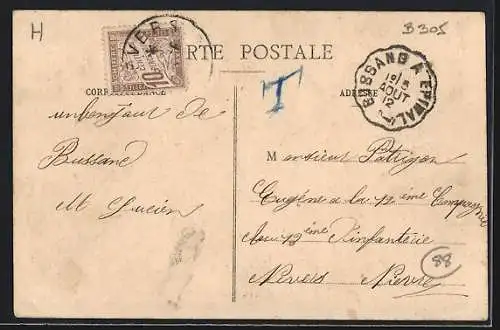 H
B305
CARTE POSTALE
CORRESPONDANCE
ADRESSE
T
BUSSANG A EPINAL
19 8
AOUT
12
10
un bonjour de
Bussang
M Lucien
Monsieur
Eugène de la 12 ème Compagnie
au 13 ème d'infanterie
Nevers Nièvre
88